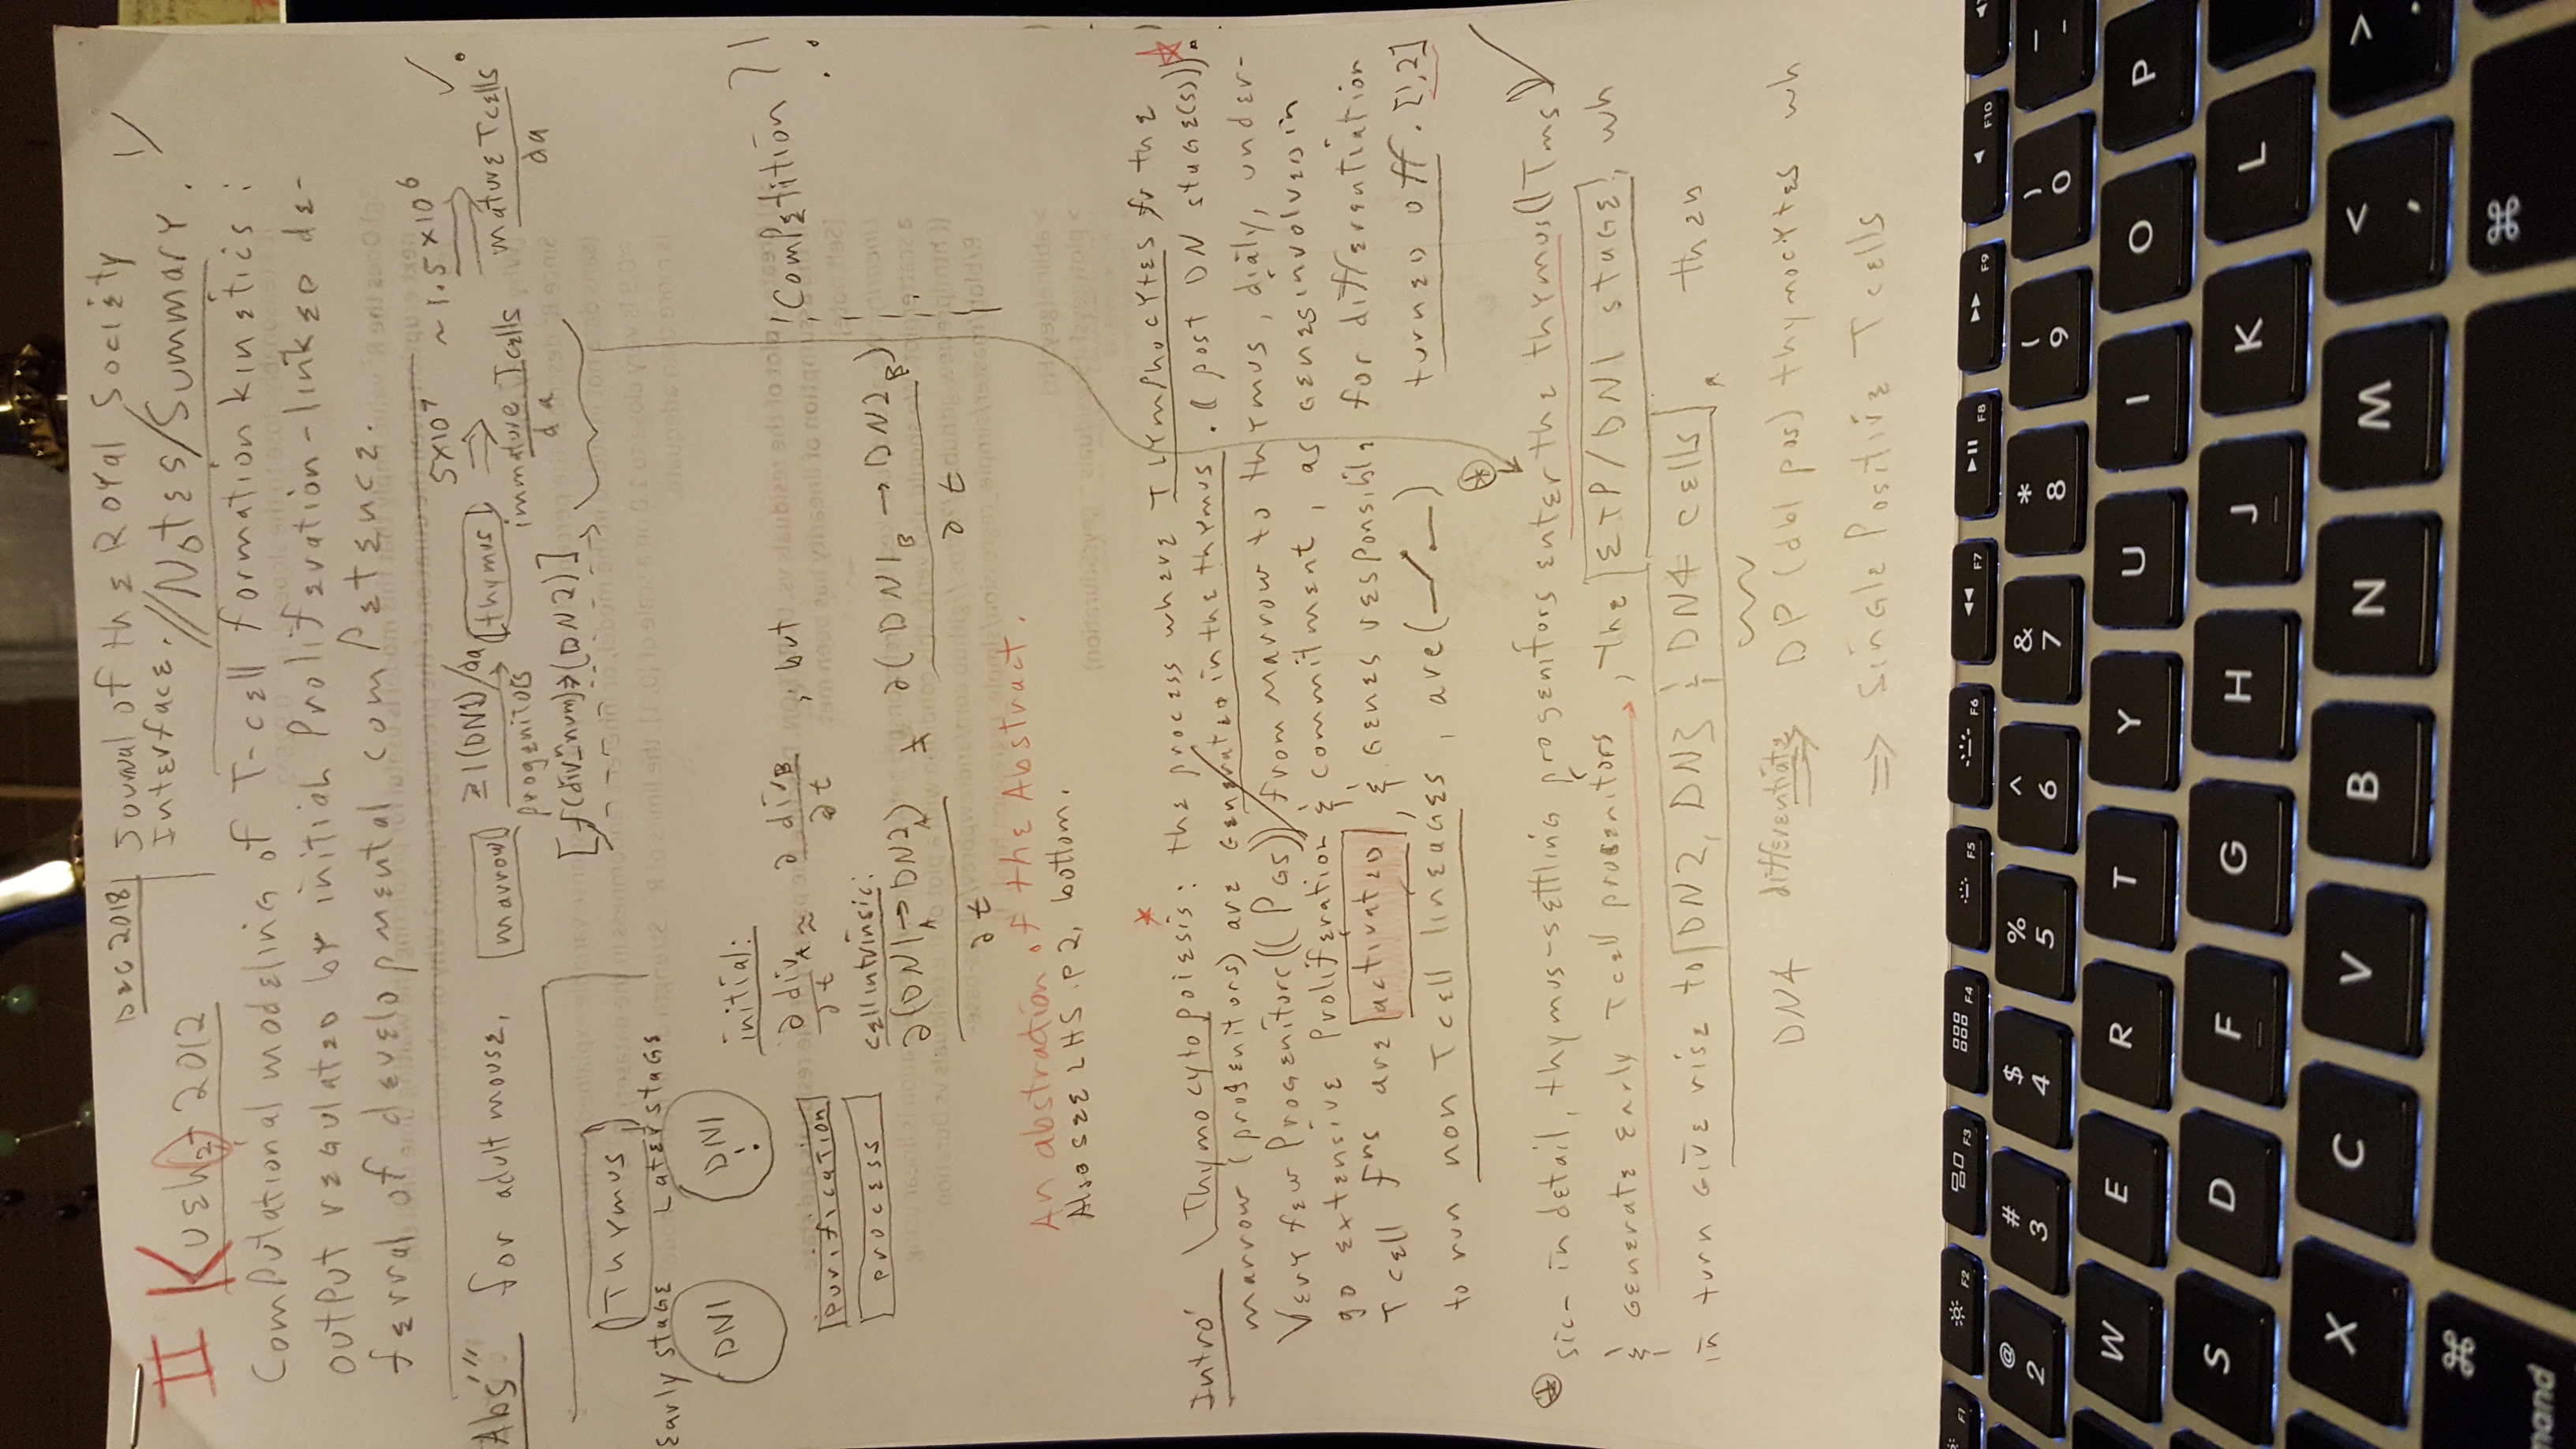 Dec 2018
Journal of the Royal Society
Interface. //Notes/Summary.
II Kueh 2012
Computational modeling of T-cell formation kinetics:
output regulated by initial Proliferation-linked de-
ferral of developmental competence.
Abs''' for adult mouse, [marrow] ≥1(DN1)/da progenitors [thymus] 5×10⁷ immature Tcells/da ~1.5×10⁶ mature Tcells/da
(Thymus)
Early stage Later stage
DN1 DN1 !
initial:
∂ div_A/∂t ≈ ∂ div_B/∂t, but
purification
process
cell intrinsic:
∂(DN1_A → DN2_A)/∂t ≠ ∂(DN1_B → DN2_B)/∂t
Competition ?!
An abstration of the Abstract.
Also see LHS p2, bottom.
Intro' Thymocytopoiesis: the process where T Lymphocytes fr the
marrow (progenitors) are generated in the thymus. (( post DN stage(s))).
Very few Progenitors((PGS)) from marrow to thymus, dialy, under-
go extensive Proliferation & commitment, as genes involved in
T cell fns are activated, & genes responsible for differentiation
to run non Tcell lineages, are( ) turned off. [1,2]
sic- in detail, thymus-settling progenitors enter the thymus((Tms))
& generate early Tcell progenitors, the ETP/DN1 stage, wh
in turn give rise to DN2, DN3 & DN4 cells. then
DN4 differentiate ⇒ DP (dbl pos) thymocytes wh
⇒ Single Positive T cells
F1 F2 F3 F4 F5 F6 F7 F8 F9 F10
@ # $ % ^ & * ( )
2 3 4 5 6 7 8 9 0
W E R T Y U I O P
S D F G H J K L
X C V B N M < >
,
⌘ ⌘
mand